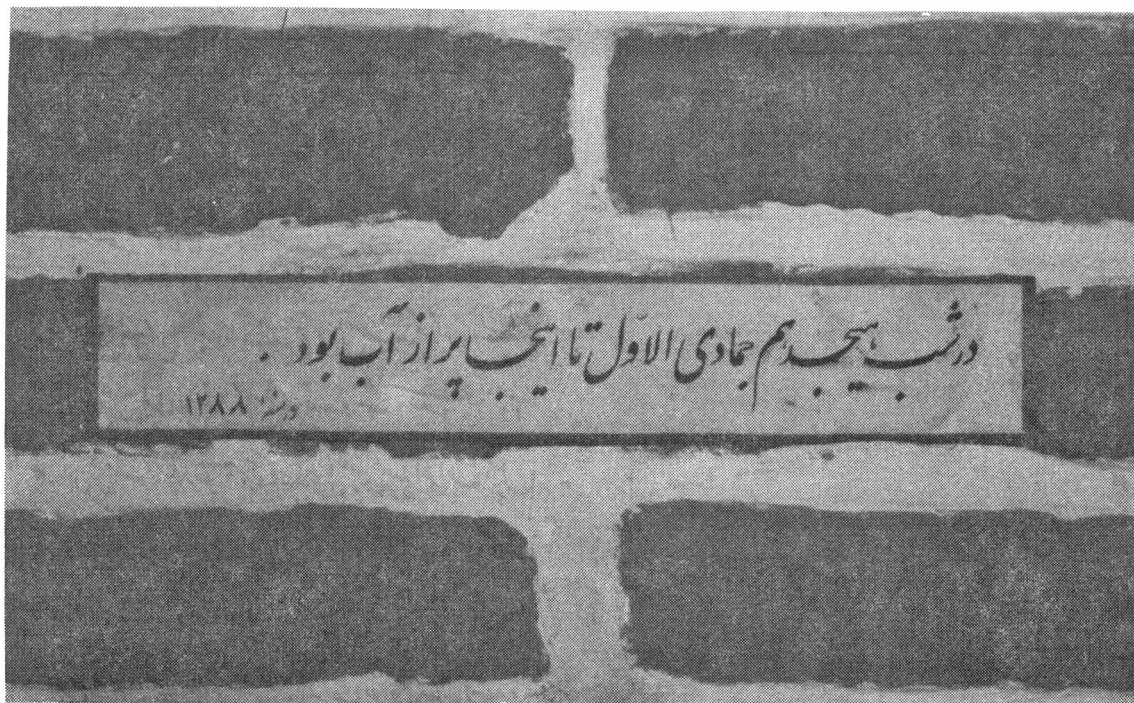 در شب هیجدهم جمادی الاوّل تا اینجا پر از آب بود .
در سنه ۱۲۸۸